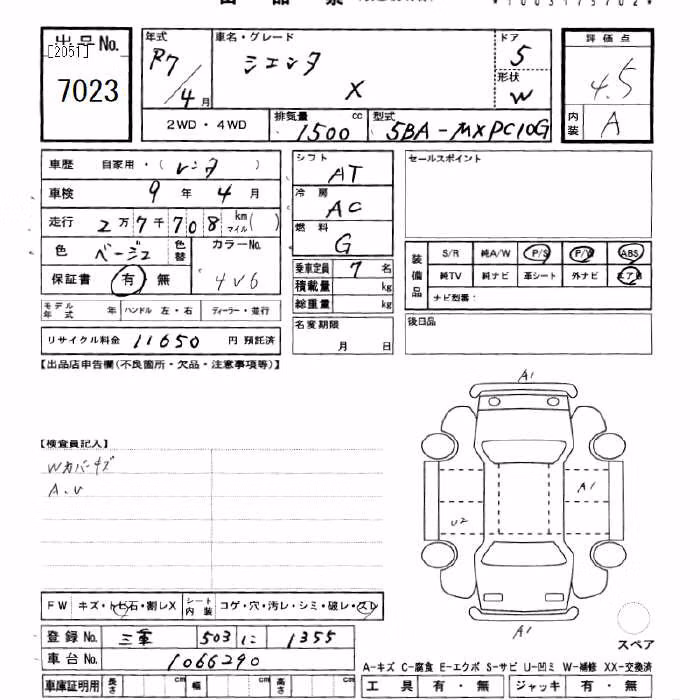 出品No.
[2051]
7023
年式
R7/4月
車名・グレード
シエンタ
X
ドア
5
形状
W
評価点
4.5
内装
A
2WD・4WD
排気量
1500 cc
型式
5BA-MXPC10G
車歴 自家用・(レンタ)
車検 9年4月
走行 2万7千708 km マイル( )
色 ベージュ 色替
カラーNo.
4V6
保証書 有 無
モデル年式 年 ハンドル 左・右 ディーラー・並行
リサイクル料金 11650 円 預託済
シフト
AT
冷房
AC
燃料
G
乗車定員 7 名
積載量 kg
総重量 kg
名変期限
月 日
セールスポイント
装備品
S/R 純A/W P/S P/W ABS
純TV 純ナビ 革シート 外ナビ エアB
ナビ型番:
後日品
【出品店申告欄(不良箇所・欠品・注意事項等)】
【検査員記入】
Wカバーキズ
A.U
A1
A1
U2
A1
スペア
FW キズ・トビ石・割レX
シート内装 コゲ・穴・汚レ・シミ・破レ・スレ
登録No. 三重 503 に 1355
車台No. 1066290
車庫証明用 長さ cm 幅 cm 高さ cm
A-キズ C-腐食 E-エクボ S-サビ U-凹ミ W-補修 XX-交換済
工具 有・無 ジャッキ 有・無